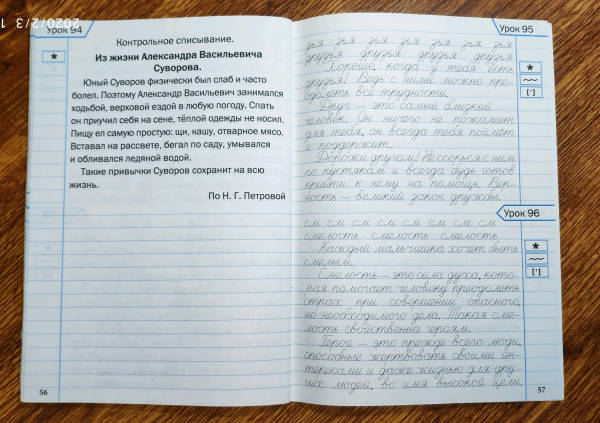 2020/2/3 1
Урок 94
*
Контрольное списывание.
Из жизни Александра Васильевича
Суворова.
Юный Суворов физически был слаб и часто
болел. Поэтому Александр Васильевич занимался
ходьбой, верховой ездой в любую погоду. Спать
он приучил себя на сене, тёплой одежды не носил.
Пищу ел самую простую: щи, кашу, отварное мясо.
Вставал на рассвете, бегал по саду, умывался
и обливался ледяной водой.
Такие привычки Суворов сохранит на всю
жизнь.
По Н. Г. Петровой
56
Урок 95
*
[']
зья зья зья зья зья зья зья
друзья друзья друзья друзья
Хорошо, когда у тебя есть
друзья! Ведь с ними можно пре-
одолеть все трудности.
Друг — это самый близкий
человек. Он ничего не пожалеет
для тебя, он всегда тебя поймёт
и поддержит.
Дорожи другом! Не ссорься с ним
по пустякам и всегда будь готов
прийти к нему на помощь. Вер-
ность — великий закон дружбы.
Урок 96
*
[']
см см см см см см см см
смелость смелость смелость
Каждый мальчишка хочет быть
смелым.
Смелость — это сила духа, кото-
рая помогает человеку преодолеть
страх при совершении опасного,
но необходимого дела. Такая сме-
лость свойственна героям.
Герои — это прежде всего люди,
способные жертвовать своими ин-
тересами и даже жизнью для дру-
гих людей, во имя высокой цели.
57